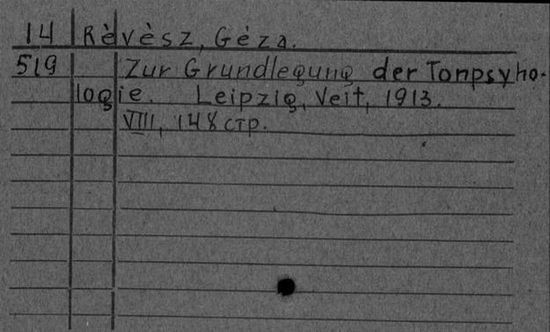 14 Rèvèsz, Gèza.
519 Zur Grundlegung der Tonpsyho-
logie. Leipzig, Veit, 1913.
VIII, 148 стр.